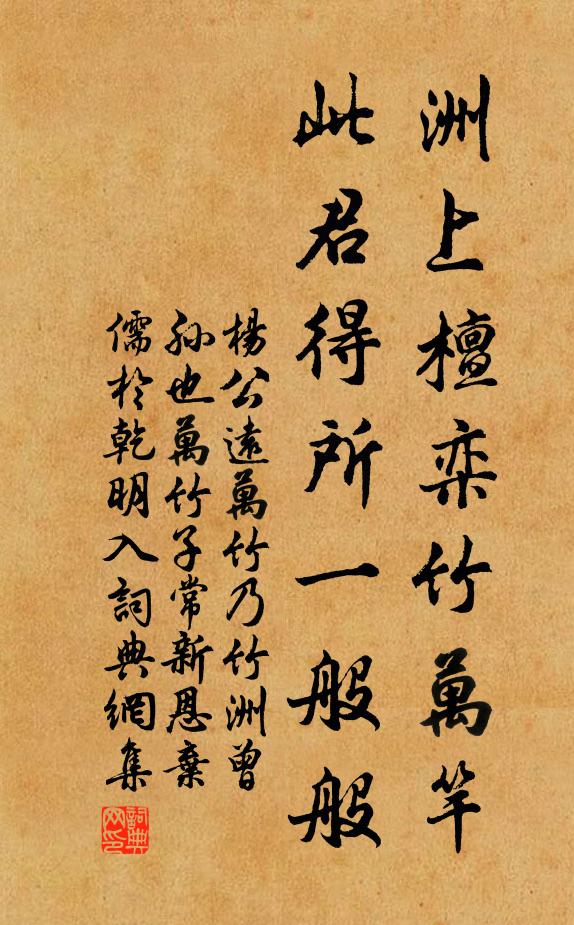 洲上檀栾竹萬竿
此君得所一般般
楊公遠萬竹乃竹洲曾
孫也萬竹子常新恩棄
儒於乾明入詞典網集
詞典网印